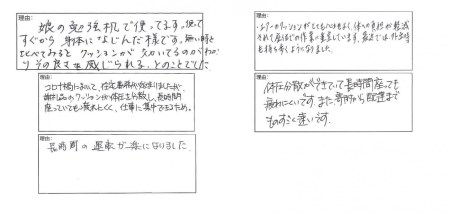 理由:
娘の勉強机で使ってます。使って
すぐから身体になじんだ様です。無い時と
比べてみるとクッションが
りその良さも感じられる、とのことでした
理由:
コロナ禍において、在宅勤務が始まりましたが、
クッションが体圧を分散し、長時間
座っていても疲れにくく、仕事に集中できるため。
理由:
長時間の運転が楽になりました。
理由:
クッションがとても心地よく、体への負担が軽減
されて
を持ち歩くようになりました。
理由:
体圧分散ができていて長時間座っても
疲れにくいです。また、寄附から配達まで
ものすごく速いです。